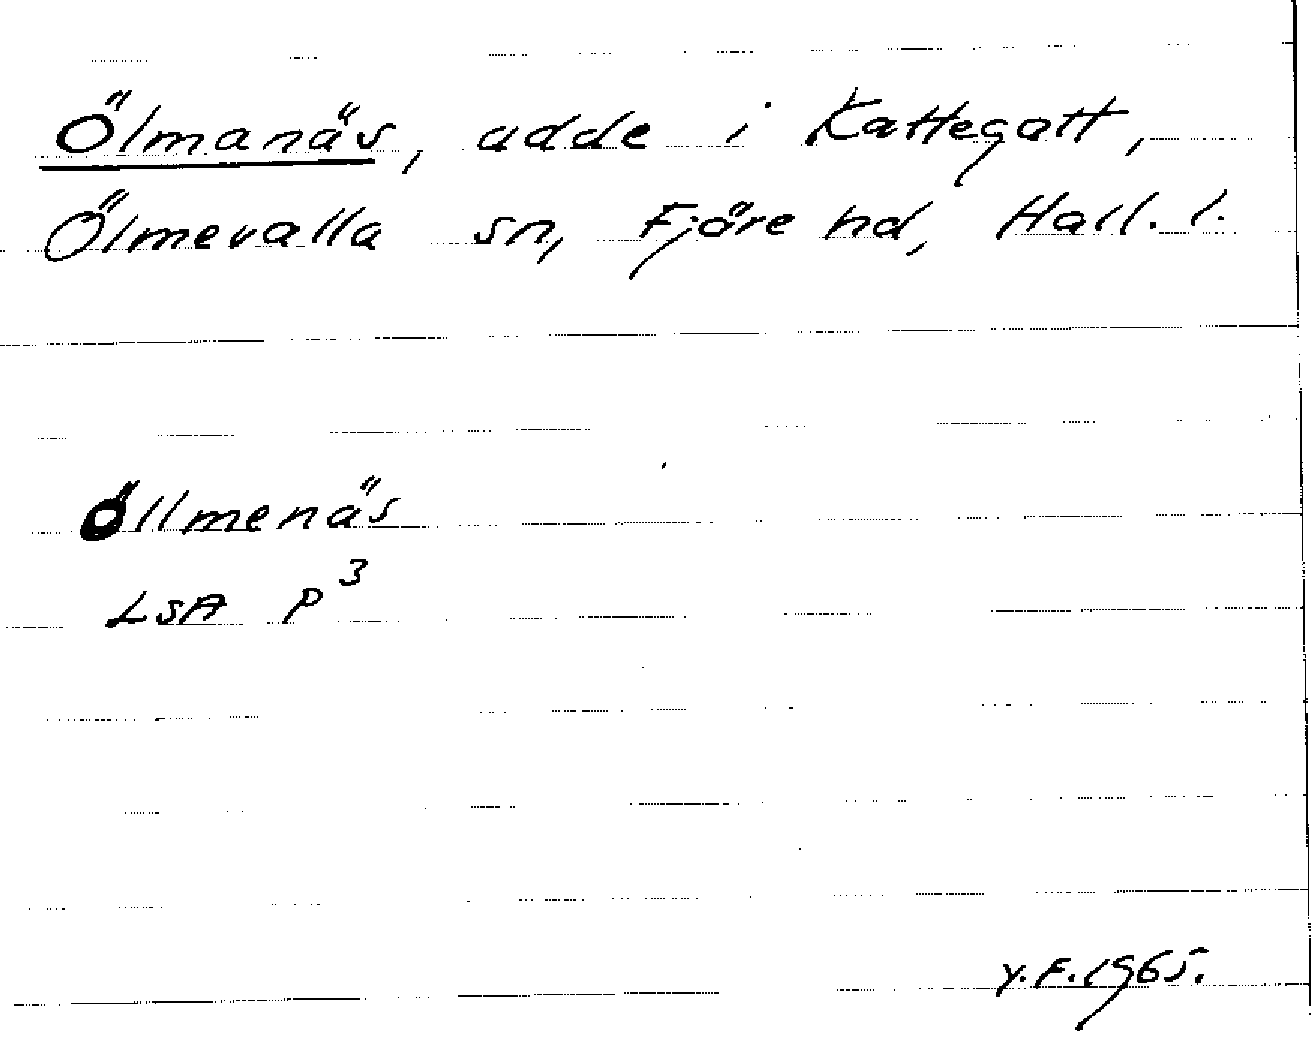 Ölmanäs, udde i Kattegatt,
Ölmevalla sn, Fjäre hd, Hall. l.
Öllmenäs
LSA P³
Y.F. 1965.